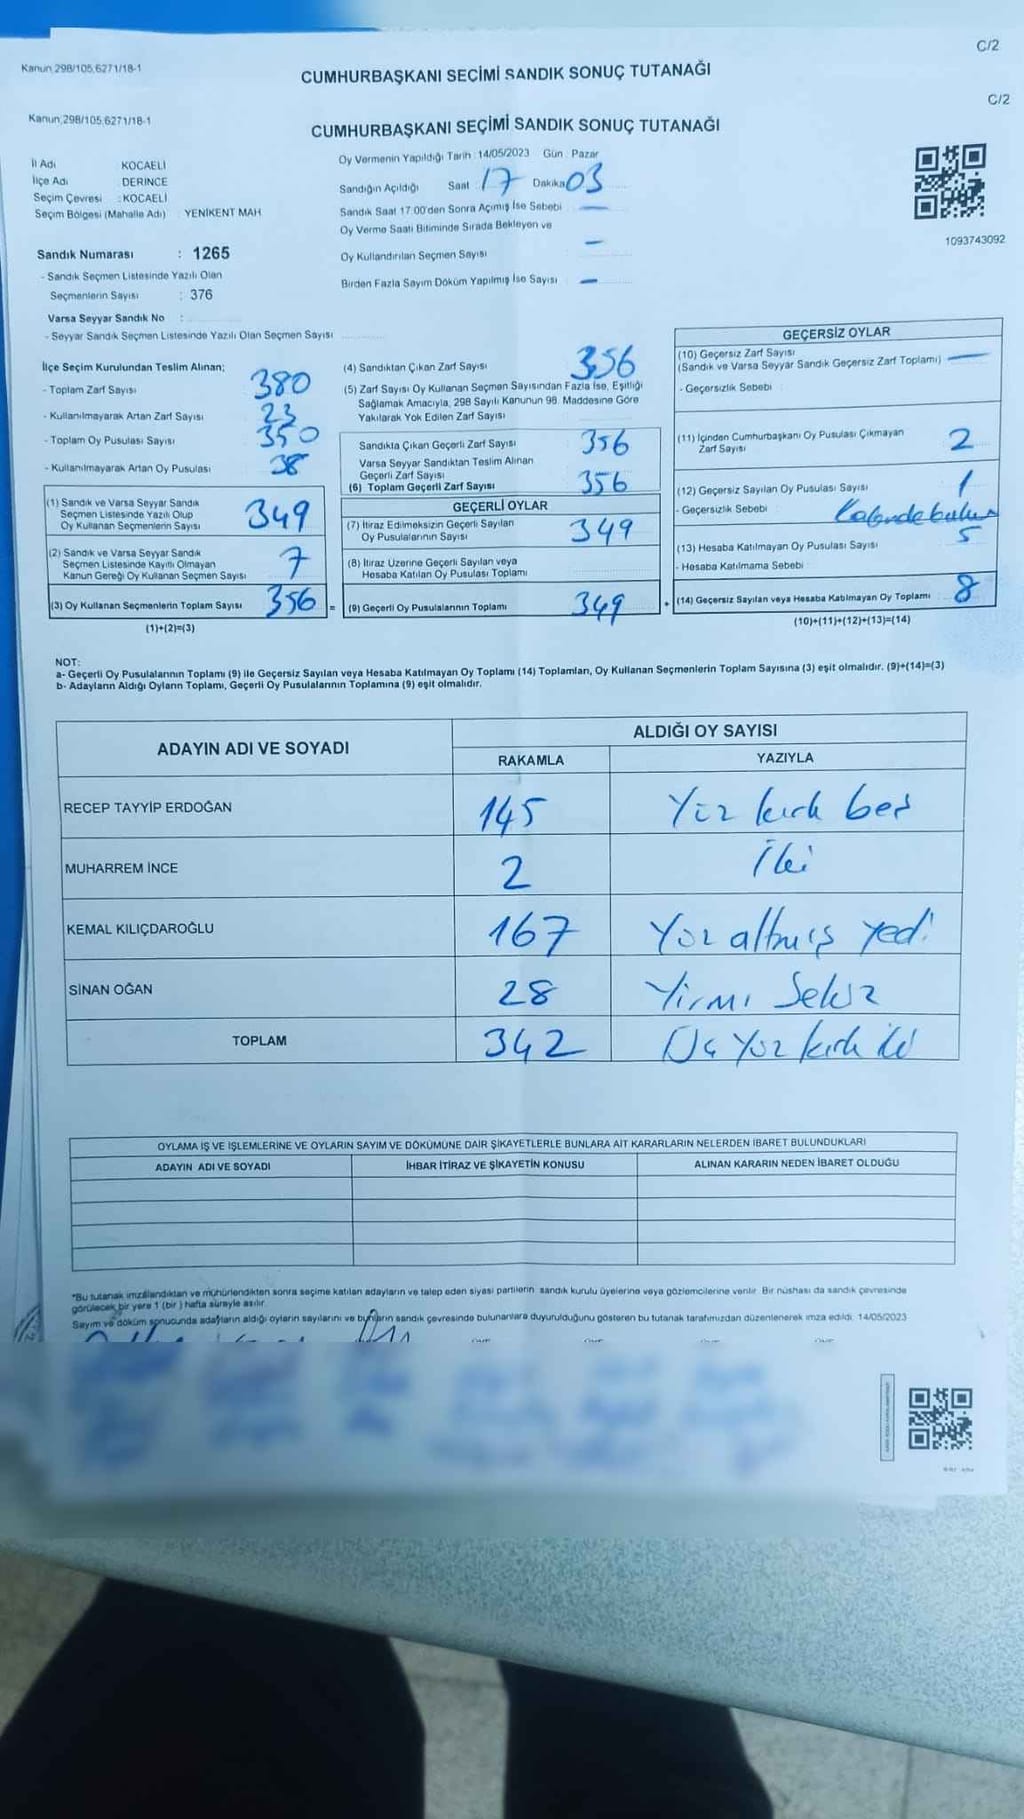 C/2
Kanun,298/105,6271/18-1
CUMHURBAŞKANI SEÇİMİ SANDIK SONUÇ TUTANAĞI
C/2
Kanun,298/105,6271/18-1
CUMHURBAŞKANI SEÇİMİ SANDIK SONUÇ TUTANAĞI
İl Adı KOCAELİ
İlçe Adı DERİNCE
Seçim Çevresi : KOCAELİ
Seçim Bölgesi (Mahalle Adı) YENİKENT MAH
Sandık Numarası : 1265
- Sandık Seçmen Listesinde Yazılı Olan
Seçmenlerin Sayısı : 376
Varsa Seyyar Sandık No :
- Seyyar Sandık Seçmen Listesinde Yazılı Olan Seçmen Sayısı
Oy Vermenin Yapıldığı Tarih : 14/05/2023 Gün : Pazar
Sandığın Açıldığı Saat : 17 Dakika 03
Sandık Saat 17:00'den Sonra Açımış İse Sebebi —
Oy Verme Saati Bitiminde Sırada Bekleyen ve
Oy Kullandırılan Seçmen Sayısı —
Birden Fazla Sayım Döküm Yapılmış İse Sayısı —
1093743092
İlçe Seçim Kurulundan Teslim Alınan;
- Toplam Zarf Sayısı 380
- Kullanılmayarak Artan Zarf Sayısı 23
- Toplam Oy Pusulası Sayısı 350
- Kullanılmayarak Artan Oy Pusulası 38
(1) Sandık ve Varsa Seyyar Sandık
Seçmen Listesinde Yazılı Olup
Oy Kullanan Seçmenlerin Sayısı 349
(2) Sandık ve Varsa Seyyar Sandık
Seçmen Listesinde Kayıtlı Olmayan
Kanun Gereği Oy Kullanan Seçmen Sayısı 7
(3) Oy Kullanan Seçmenlerin Toplam Sayısı 356 =
(1)+(2)=(3)
(4) Sandıktan Çıkan Zarf Sayısı 356
(5) Zarf Sayısı Oy Kullanan Seçmen Sayısından Fazla İse, Eşitliği
Sağlamak Amacıyla, 298 Sayılı Kanunun 98. Maddesine Göre
Yakılarak Yok Edilen Zarf Sayısı
Sandıkta Çıkan Geçerli Zarf Sayısı 356
Varsa Seyyar Sandıktan Teslim Alınan
Geçerli Zarf Sayısı
(6) Toplam Geçerli Zarf Sayısı 356
GEÇERLİ OYLAR
(7) İtiraz Edilmeksizin Geçerli Sayılan
Oy Pusulalarının Sayısı 349
(8) İtiraz Üzerine Geçerli Sayılan veya
Hesaba Katılan Oy Pusulası Toplamı
(9) Geçerli Oy Pusulalarının Toplamı 349 +
GEÇERSİZ OYLAR
(10) Geçersiz Zarf Sayısı
(Sandık ve Varsa Seyyar Sandık Geçersiz Zarf Toplamı) —
- Geçersizlik Sebebi
(11) İçinden Cumhurbaşkanı Oy Pusulası Çıkmayan
Zarf Sayısı 2
(12) Geçersiz Sayılan Oy Pusulası Sayısı 1
- Geçersizlik Sebebi
(13) Hesaba Katılmayan Oy Pusulası Sayısı 5
- Hesaba Katılmama Sebebi
(14) Geçersiz Sayılan veya Hesaba Katılmayan Oy Toplamı 8
(10)+(11)+(12)+(13)=(14)
NOT:
a- Geçerli Oy Pusulalarının Toplamı (9) ile Geçersiz Sayılan veya Hesaba Katılmayan Oy Toplamı (14) Toplamları, Oy Kullanan Seçmenlerin Toplam Sayısına (3) eşit olmalıdır. (9)+(14)=(3)
b- Adayların Aldığı Oyların Toplamı, Geçerli Oy Pusulalarının Toplamına (9) eşit olmalıdır.
ADAYIN ADI VE SOYADI
ALDIĞI OY SAYISI
RAKAMLA YAZIYLA
RECEP TAYYİP ERDOĞAN 145 Yüz kırk beş
MUHARREM İNCE 2 İki
KEMAL KILIÇDAROĞLU 167 Yüz altmış yedi
SİNAN OĞAN 28 Yirmi Sekiz
TOPLAM 342 Üç Yüz kırk iki
OYLAMA İŞ VE İŞLEMLERİNE VE OYLARIN SAYIM VE DÖKÜMÜNE DAİR ŞİKAYETLERLE BUNLARA AİT KARARLARIN NELERDEN İBARET BULUNDUKLARI
ADAYIN ADI VE SOYADI İHBAR İTİRAZ VE ŞİKAYETİN KONUSU ALINAN KARARIN NEDEN İBARET OLDUĞU
*Bu tutanak imzalandıktan ve mühürlendikten sonra seçime katılan adayların ve talep eden siyasi partilerin sandık kurulu üyelerine veya gözlemcilerine verilir. Bir nüshası da sandık çevresinde
görülecek bir yere 1 (bir ) hafta süreyle asılır.
Sayım ve döküm sonucunda adayların aldığı oyların sayılarını ve bunların sandık çevresinde bulunanlara duyurulduğunu gösteren bu tutanak tarafımızdan düzenlenerek imza edildi. 14/05/2023